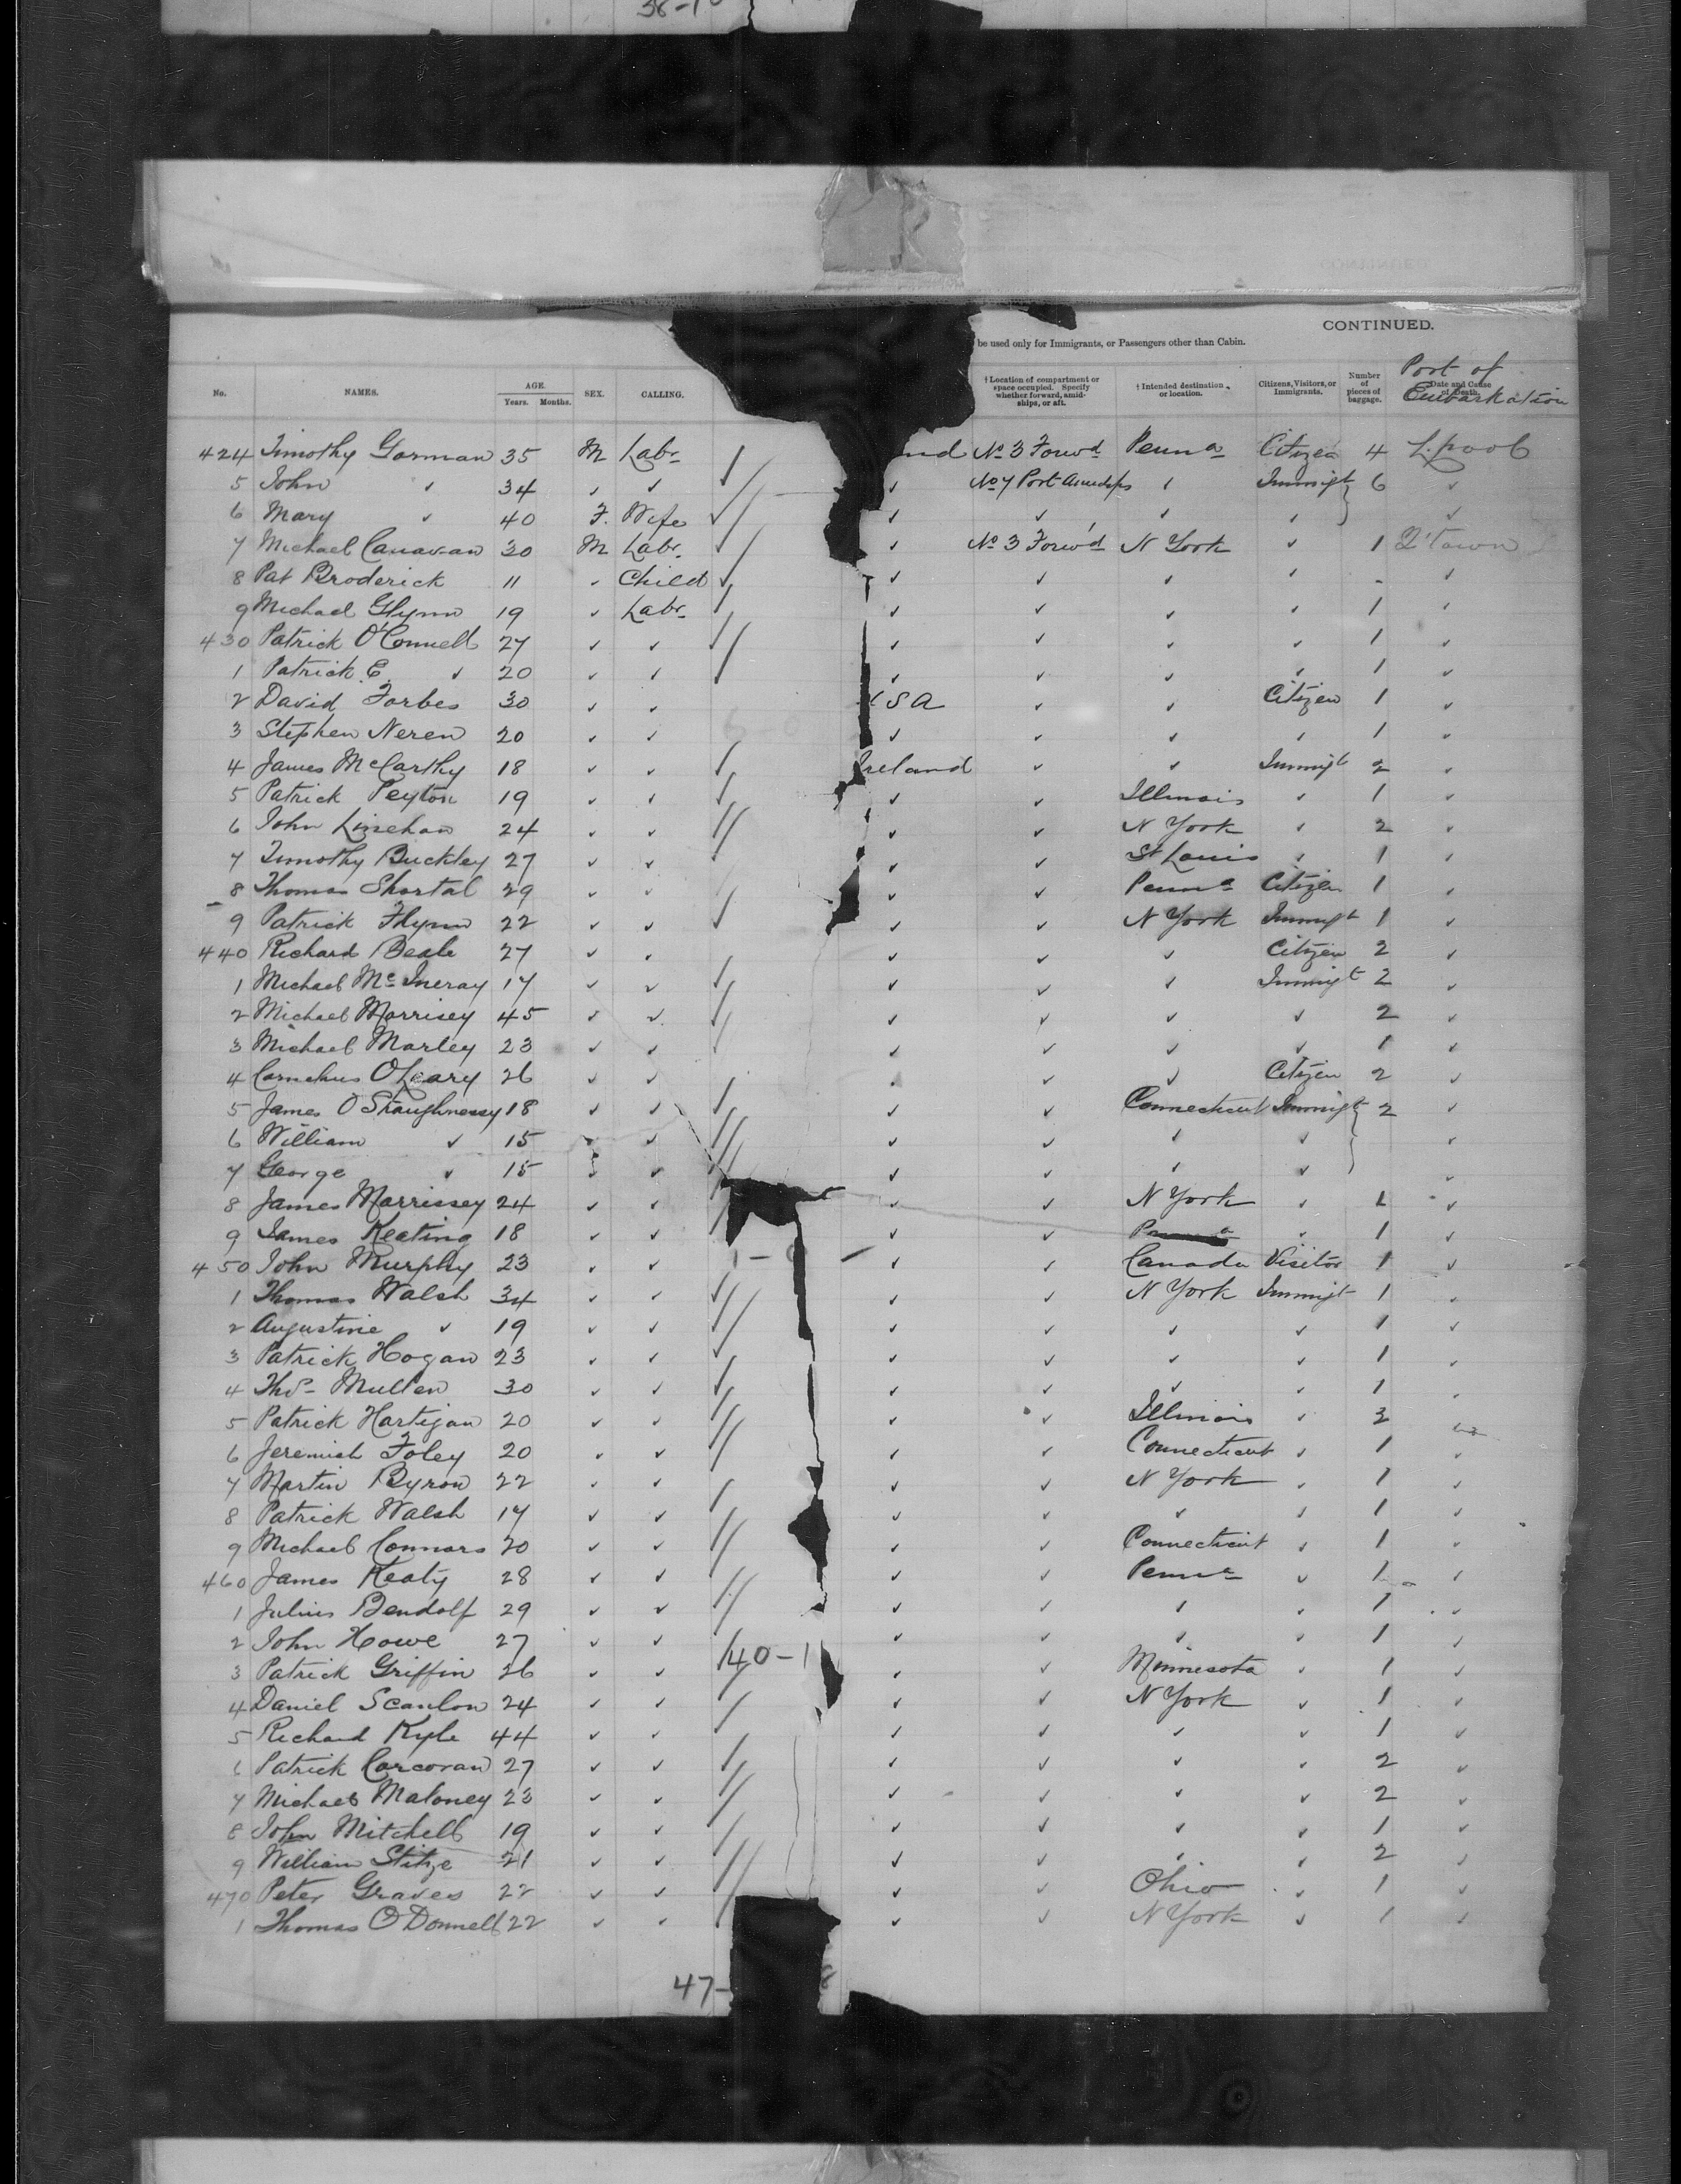 38-1
CONTINUED.
be used only for Immigrants, or Passengers other than Cabin.
No. NAMES. AGE. Years. Months. SEX. CALLING. †Location of compartment or space occupied. Specify whether forward, amidships, or aft. †Intended destination or location. Citizens, Visitors, or Immigrants. Number of pieces of baggage. Date and Cause of Death. Port of Embarkation
424 Timothy Gorman 35 M Labr nd No 3 Forwd Penna Citizen 4 L.pool
5 John ✓ 34 ✓ ✓ ✓ No 7 Port Amidships ✓ Immigt 6 ✓
6 Mary ✓ 40 F. Wife ✓ ✓ ✓ ✓ ✓
7 Michael Canavan 30 M Labr. ✓ No 3 Forwd N York ✓ 1 Q'Town
8 Pat Broderick 11 ✓ Child ✓ ✓ ✓ ✓ - ✓
9 Michael Glynn 19 ✓ Labr. ✓ ✓ ✓ ✓ 1 ✓
430 Patrick O'Connell 27 ✓ ✓ ✓ ✓ ✓ ✓ 1 ✓
1 Patrick E. ✓ 20 ✓ ✓ ✓ ✓ ✓ ✓ 1 ✓
2 David Forbes 30 ✓ ✓ USA ✓ ✓ Citizen 1 ✓
3 Stephen Neren 20 ✓ ✓ ✓ ✓ ✓ ✓ 1 ✓
4 James McCarthy 18 ✓ ✓ Ireland ✓ ✓ Immigt 2 ✓
5 Patrick Peyton 19 ✓ ✓ ✓ ✓ Illinois ✓ 1 ✓
6 John Linehan 24 ✓ ✓ ✓ ✓ N York ✓ 2 ✓
7 Timothy Buckley 27 ✓ ✓ ✓ ✓ St Louis ✓ 1 ✓
8 Thomas Shortal 29 ✓ ✓ ✓ ✓ Penna Citizen 1 ✓
9 Patrick Flynn 22 ✓ ✓ ✓ ✓ N York Immigt 1 ✓
440 Richard Beale 27 ✓ ✓ ✓ ✓ ✓ Citizen 2 ✓
1 Michael McIneray 17 ✓ ✓ ✓ ✓ ✓ Immigt 2 ✓
2 Michael Morrisey 45 ✓ ✓ ✓ ✓ ✓ ✓ 2 ✓
3 Michael Marley 23 ✓ ✓ ✓ ✓ ✓ ✓ 1 ✓
4 Cornelius O'Leary 26 ✓ ✓ ✓ ✓ ✓ Citizen 2 ✓
5 James O'Shaughnessy 18 ✓ ✓ ✓ ✓ Connecticut Immigt 2 ✓
6 William ✓ 15 ✓ ✓ ✓ ✓ ✓ ✓ ✓
7 George ✓ 15 ✓ ✓ ✓ ✓ ✓ ✓ ✓
8 James Morrissey 24 ✓ ✓ ✓ ✓ N York ✓ 1 ✓
9 James Keating 18 ✓ ✓ ✓ ✓ Penna ✓ 1 ✓
450 John Murphy 23 ✓ ✓ ✓ ✓ Canada Visitor 1 ✓
1 Thomas Walsh 34 ✓ ✓ ✓ ✓ N York Immigt 1 ✓
2 Augustine ✓ 19 ✓ ✓ ✓ ✓ ✓ ✓ 1 ✓
3 Patrick Hogan 23 ✓ ✓ ✓ ✓ ✓ ✓ 1 ✓
4 Thos Mullen 30 ✓ ✓ ✓ ✓ ✓ ✓ 1 ✓
5 Patrick Hartigan 20 ✓ ✓ ✓ ✓ Illinois ✓ 3 ✓
6 Jeremiah Foley 20 ✓ ✓ ✓ ✓ Connecticut ✓ 1 ✓
7 Martin Byron 22 ✓ ✓ ✓ ✓ N York ✓ 1 ✓
8 Patrick Walsh 17 ✓ ✓ ✓ ✓ ✓ ✓ 1 ✓
9 Michael Connors 20 ✓ ✓ ✓ ✓ Connecticut ✓ 1 ✓
460 James Keaty 28 ✓ ✓ ✓ ✓ Penna ✓ 1 ✓
1 Julius Bendolf 29 ✓ ✓ ✓ ✓ ✓ ✓ 1 ✓
2 John Howe 27 ✓ ✓ ✓ ✓ ✓ ✓ 1 ✓
3 Patrick Griffin 26 ✓ ✓ 40-1 ✓ ✓ Minnesota ✓ 1 ✓
4 Daniel Scanlon 24 ✓ ✓ ✓ ✓ N York ✓ 1 ✓
5 Richard Kyle 44 ✓ ✓ ✓ ✓ ✓ ✓ 1 ✓
6 Patrick Corcoran 27 ✓ ✓ ✓ ✓ ✓ ✓ 2 ✓
7 Michael Maloney 23 ✓ ✓ ✓ ✓ ✓ ✓ 2 ✓
8 John Mitchell 19 ✓ ✓ ✓ ✓ ✓ ✓ 1 ✓
9 William Stitze 21 ✓ ✓ ✓ ✓ ✓ ✓ 2 ✓
470 Peter Graves 22 ✓ ✓ ✓ ✓ Ohio ✓ 1 ✓
1 Thomas O'Donnell 22 ✓ ✓ ✓ ✓ N York ✓ 1 ✓
47- 8